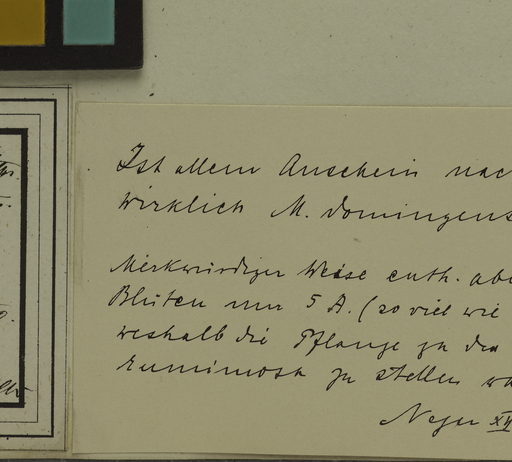 Ist allem Anschein nac
wirklich M. domingens
Merkwürdiger Weise enth. abe
Blüten nur 5 A. (so viel wie
weshalb die Pflanze zu den
Eumimosa zu stellen wä
Neger XII